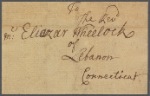 To
The Revd
Mr Eleazar Wheelock
of
Lebanon
Connecticut